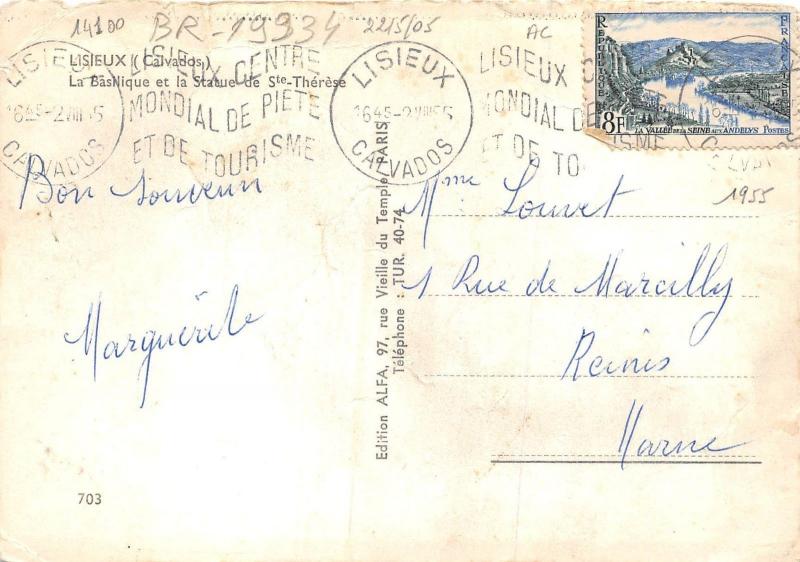 14100
BR-19934
2215/05
AC
LISIEUX (Calvados)
La Basilique et la Statue de Ste-Thérèse
LISIEUX
16 45 - 2 VIII 55
CALVADOS
LISIEUX CENTRE
MONDIAL DE PIÉTÉ
ET DE TOURISME
LISIEUX
16 45 - 2 VIII 55
CALVADOS
LISIEUX
MONDIAL DE
ET DE TOURISME
REPUBLIQUE FRANÇAISE
8F
LA VALLÉE DE LA SEINE AUX ANDELYS POSTES
Bon souvenir
Marguérite
703
Edition ALFA, 97, rue Vieille du Temple, PARIS
Téléphone : TUR. 40-74
1955
Mme Louvet
1 Rue de Marcilly
Reims
Marne